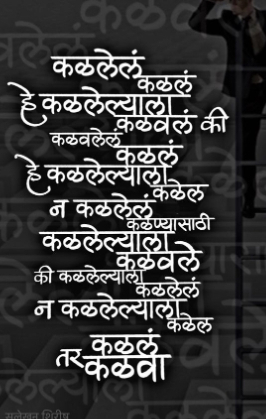 कळलेलं
कळलं
हे कळलेल्याला
कळवलं की
कळवलेलं
कळलं
हे कळलेल्याला
कळेल
न कळलेलं
कळण्यासाठी
कळलेल्याला
कळवले
की कळलेल्याला
कळलेलं
न कळलेल्याला
कळेल
कळलं
तर कळवा
सुलेखन शिरीष